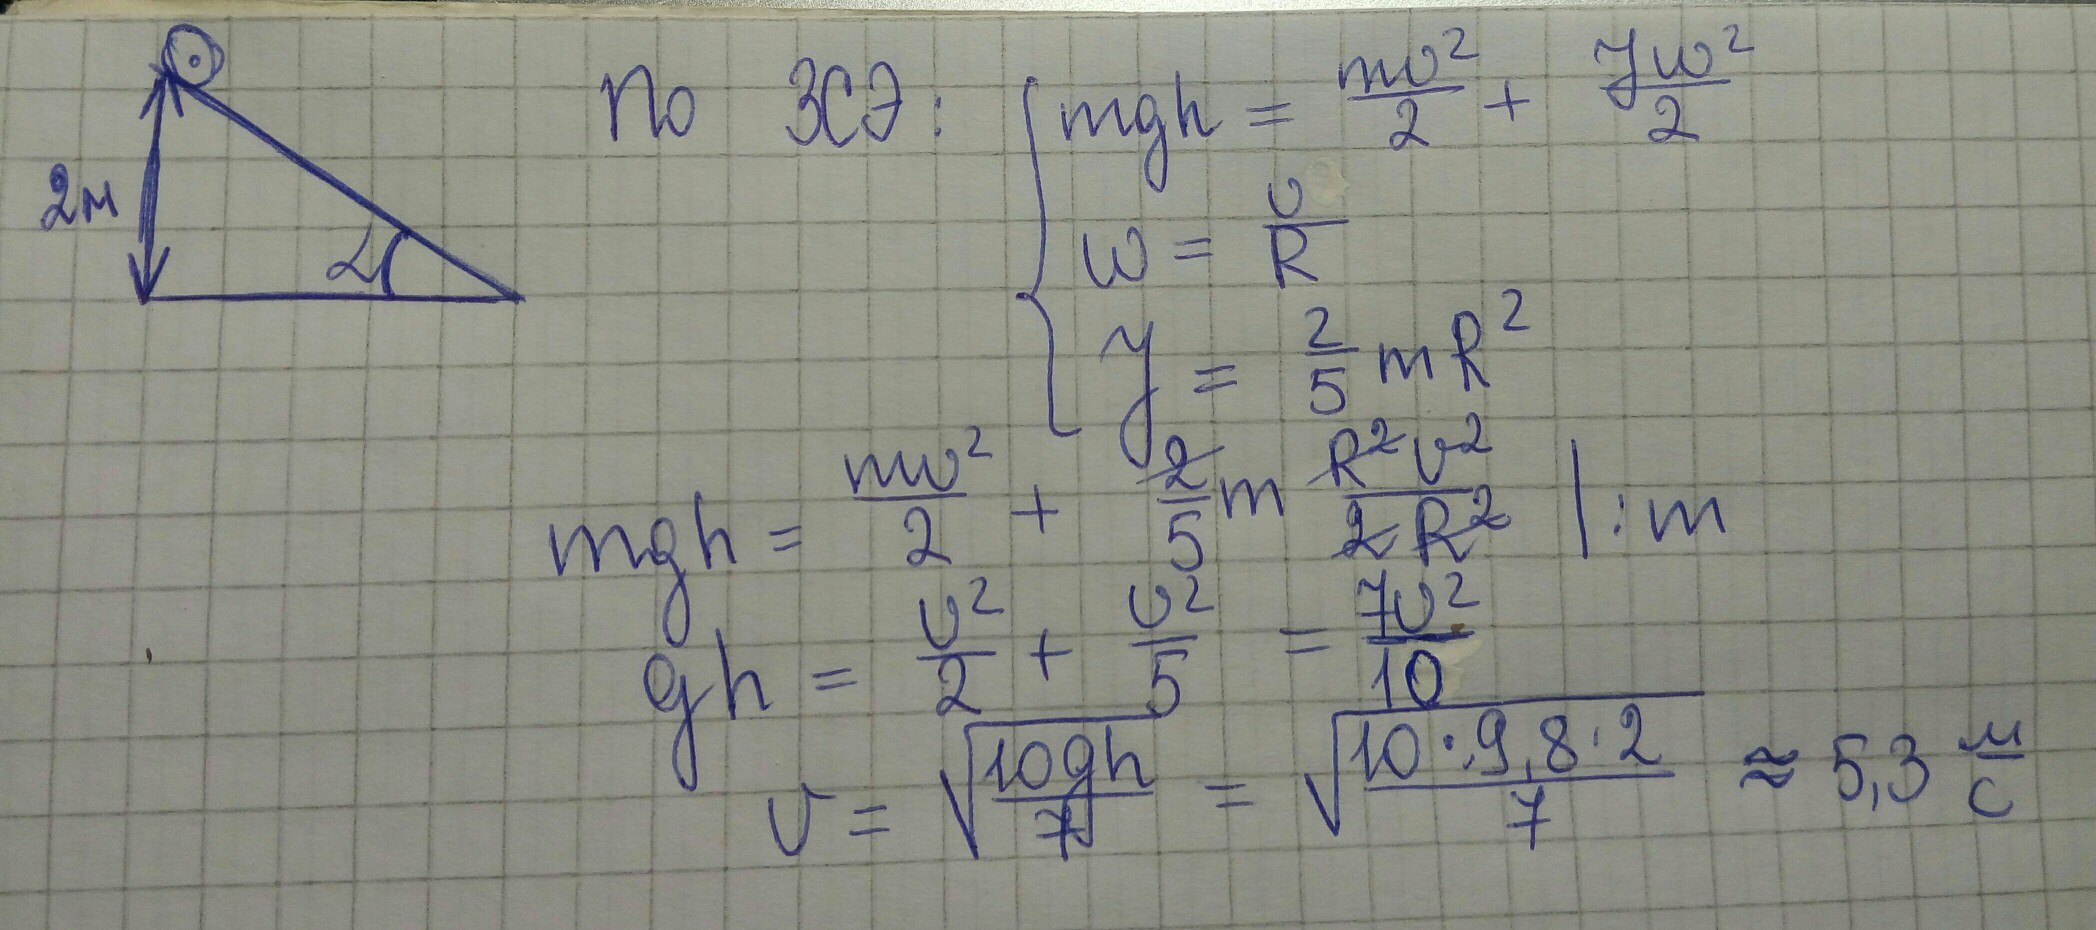 2м
α
По ЗСЭ: { mgh = mv²/2 + Jω²/2
ω = v/R
J = 2/5 mR²
mgh = mv²/2 + 2/5 m R²v²/2R² | : m
gh = v²/2 + v²/5 = 7v²/10
v = √(10gh/7) = √(10·9,8·2/7) ≈ 5,3 м/с